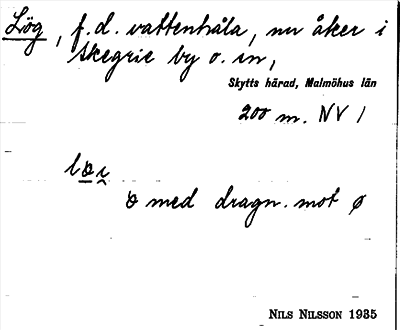 Lög, f.d. vattenhåla, nu åker i
Skegrie by o. sn,
Skytts härad, Malmöhus län
200 m. NV /
med dragn. mot ø
NILS NILSSON 1935